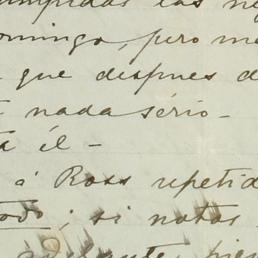 las
omingo, pero me
que despues d
nada sério –
él –
á Ross repetid
todo; si notas